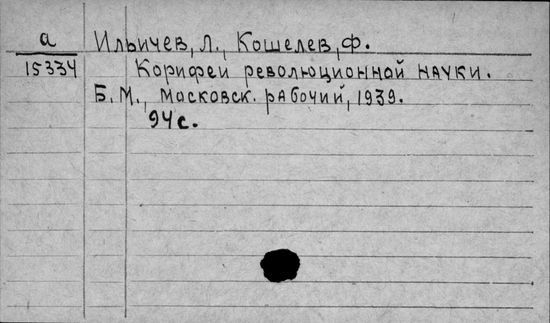 а Ильичев, Л., Кошелев, Ф.
15334 Корифеи революционной науки.
Б.М., Московск. рабочий, 1939.
94 с.